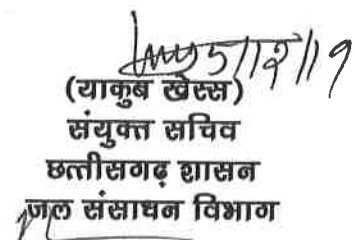 (याकुब खेस्स)
संयुक्त सचिव
छत्तीसगढ़ शासन
जल संसाधन विभाग